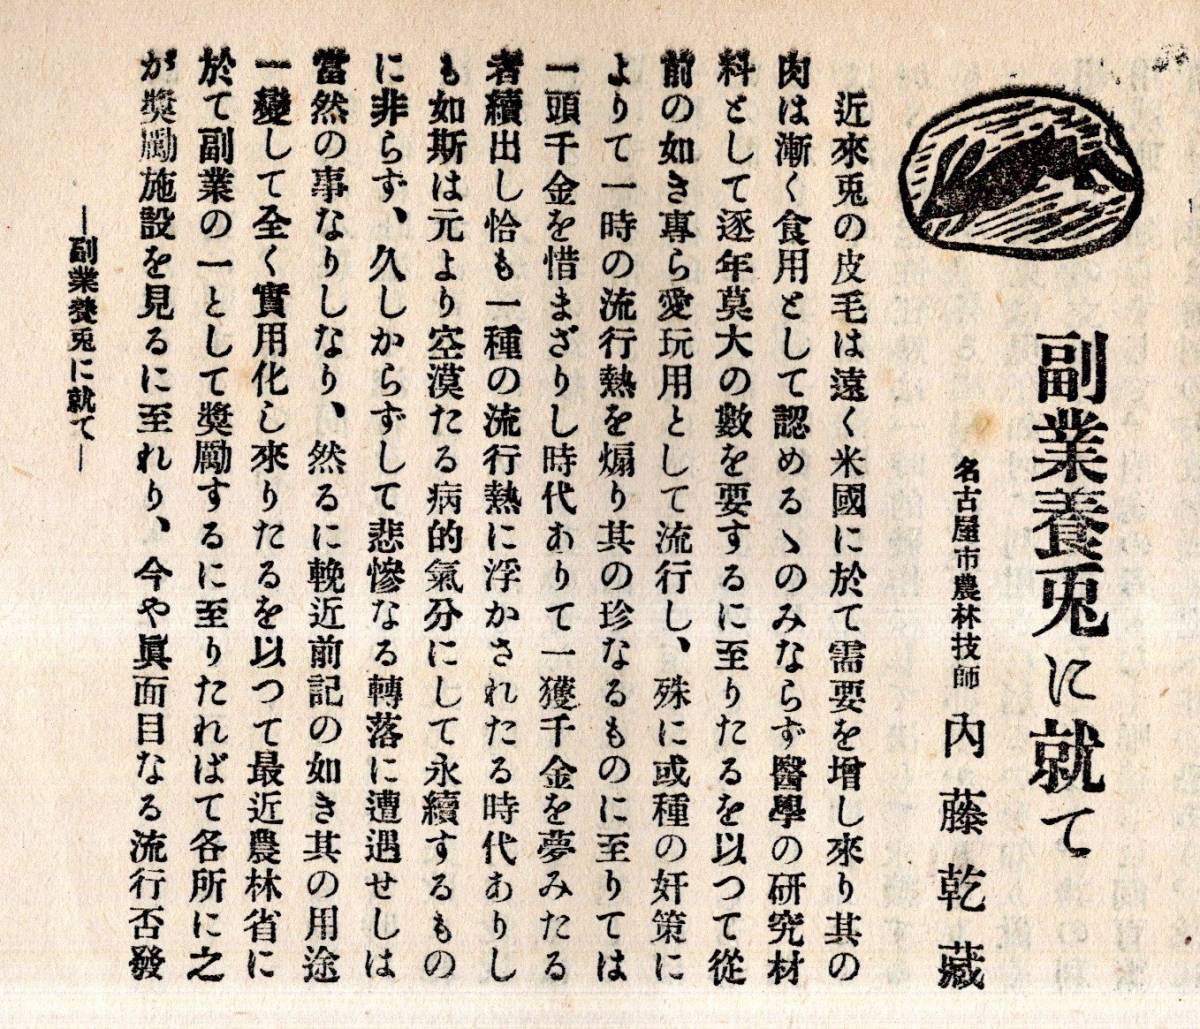 副業養兎に就て
名古屋市農林技師 內藤乾藏
近來兎の皮毛は遠く米國に於て需要を增し來り其の
肉は漸く食用として認めるゝのみならず醫學の硏究材
料として逐年莫大の數を要するに至りたるを以つて從
前の如き專ら愛玩用として流行し、殊に或種の奸策に
よりて一時の流行熱を煽り其の珍なるものに至りては
一頭千金を惜まざりし時代ありて一獲千金を夢みたる
者續出し恰も一種の流行熱に浮かされたる時代ありし
も如斯は元より空漠たる病的氣分にして永續するもの
に非らず、久しからずして悲慘なる轉落に遭遇せしは
當然の事なりしなり、然るに輓近前記の如き其の用途
一變して全く實用化し來りたるを以つて最近農林省に
於て副業の一として獎勵するに至りたればて各所に之
が獎勵施設を見るに至れり、今や眞面目なる流行否發
―副業養兎に就て―